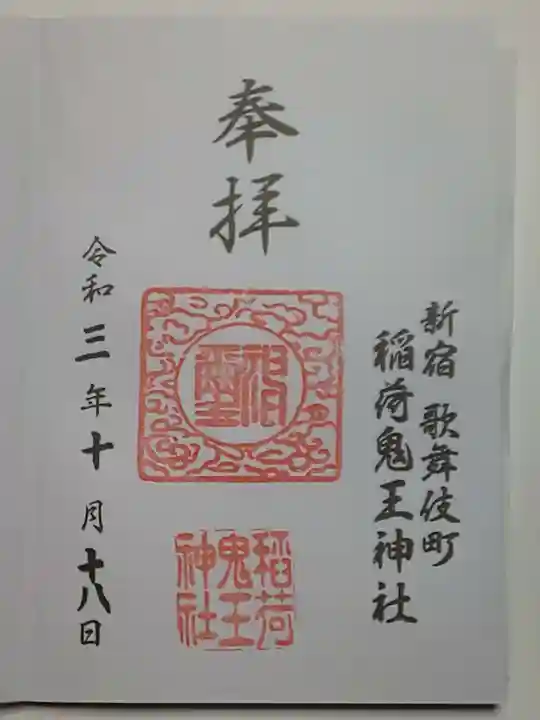 奉拝
新宿 歌舞伎町
稲荷鬼王神社
稲荷
鬼王
神社
令和三年十月十八日